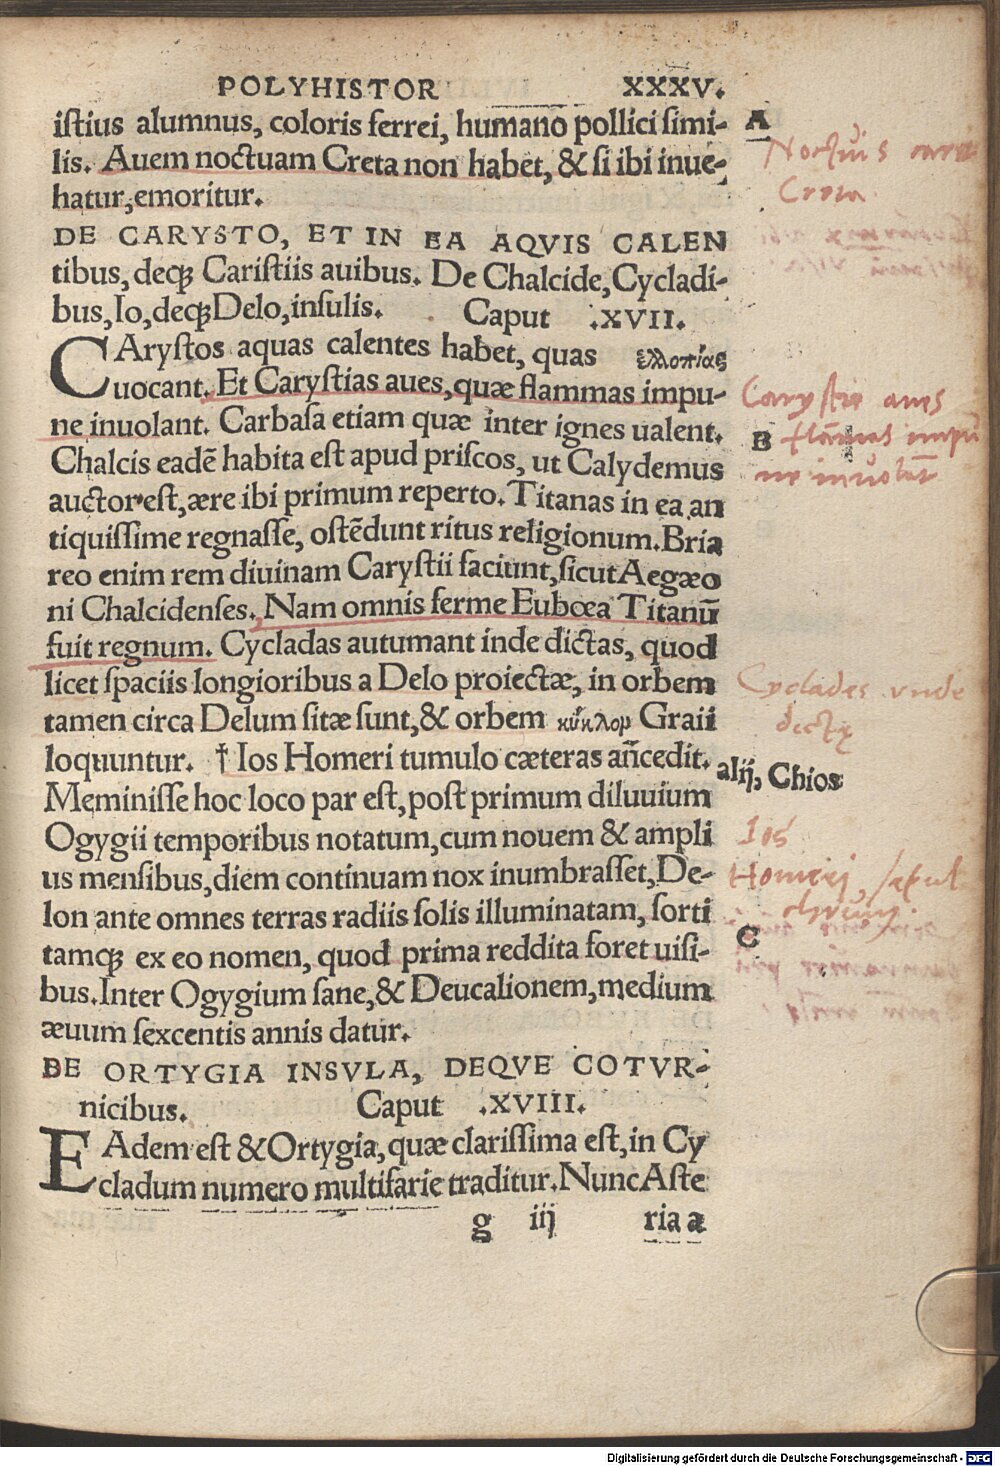 POLYHISTOR XXXV.
istius alumnus, coloris ferrei, humano pollici simi- A
lis. Auem noctuam Creta non habet, & si ibi inue-
hatur, emoritur.
Noctuis
Creta.
DE CARYSTO, ET IN EA AQVIS CALEN
tibus, deqꝫ Caristiis auibus. De Chalcide, Cycladi-
bus, Io, deqꝫ Delo, insulis. Caput .XVII.
CArystos aquas calentes habet, quas ἐλλοπίας
uocant. Et Carystias aues, quæ flammas impu-
ne inuolant. Carbasa etiam quæ inter ignes ualent. B
Carystie aues
flãmas impu
ne inuolãt
Chalcis eadẽ habita est apud priscos, ut Calydemus
auctor est, ære ibi primum reperto. Titanas in ea an
tiquissime regnasse, ostẽdunt ritus religionum. Bria
reo enim rem diuinam Carystii faciunt, sicut Aegæo
ni Chalcidenses. Nam omnis ferme Eubœa Titanũ
fuit regnum. Cycladas autumant inde dictas, quod
licet spaciis longioribus a Delo proiectæ, in orbem
tamen circa Delum sitæ sunt, & orbem κύκλον Graii
Cyclades vnde
dictę
loquuntur. † Ios Homeri tumulo cæteras añcedit. alij, Chios
Meminisse hoc loco par est, post primum diluuium
Ogygii temporibus notatum, cum nouem & ampli
us mensibus, diem continuam nox inumbrasset, De-
Ios
Homeri, sepul
chrum.
lon ante omnes terras radiis solis illuminatam, sorti C
tamqꝫ ex eo nomen, quod prima reddita foret uisi-
bus. Inter Ogygium sane, & Deucalionem, medium
æuum sexcentis annis datur.
DE ORTYGIA INSVLA, DEQVE COTVR-
nicibus. Caput .XVIII.
EAdem est & Ortygia, quæ clarissima est, in Cy
cladum numero multifarie traditur. Nunc Aste
g iij ria a
Digitalisierung gefördert durch die Deutsche Forschungsgemeinschaft - DFG